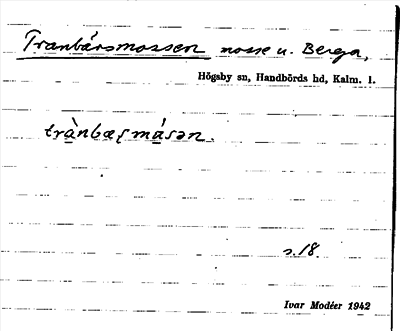 Tranbärsmossen mosse u. Berga,
Högsby sn, Handbörds hd, Kalm. l.
trànbæʂmásən.
s. 18.
Ivar Modéer 1942